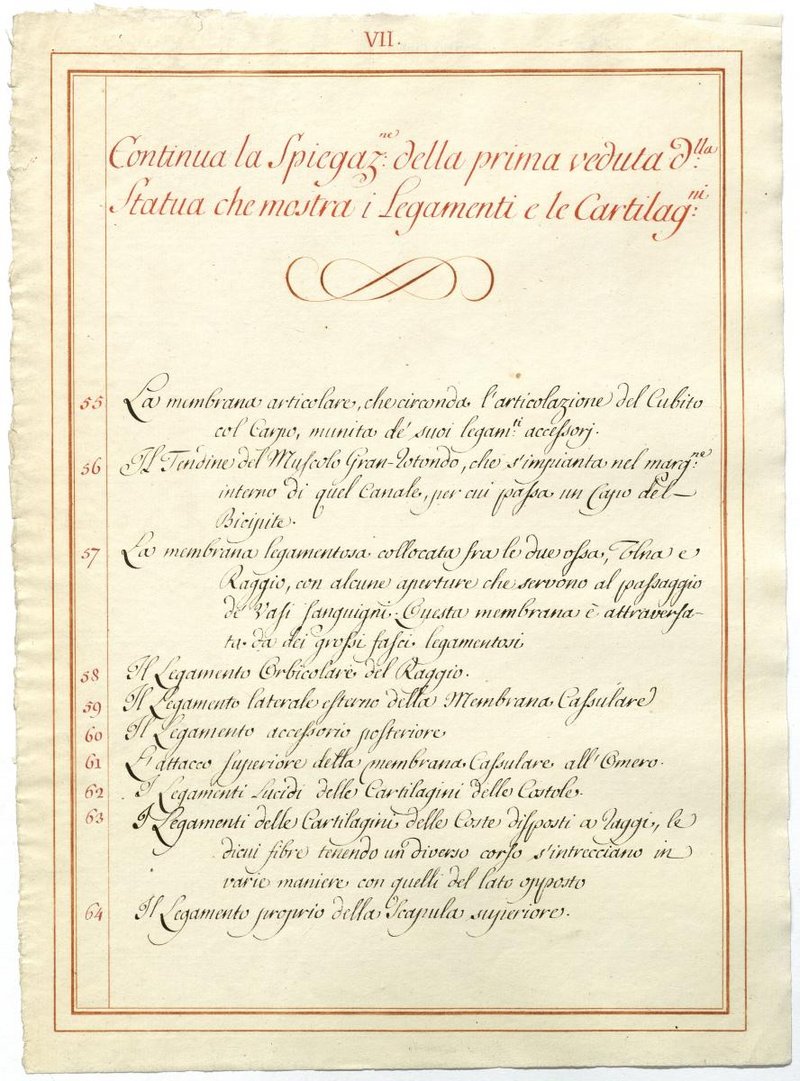 VII.
Continua la Spiegaz:ne della prima veduta d:lla
Statua che mostra i Legamenti e le Cartilag:ni
55 La membrana articolare, che circonda l'articolazione del Cubito
col Carpo, munita de' suoi legam:ti accessorj.
56 Il Tendine del Muscolo Gran-Rotondo, che s'impianta nel marg:ne
interno di quel Canale, per cui passa un Capo del
Bicipite.
57 La membrana legamentosa collocata fra le due ossa, Ulna e
Raggio, con alcune aperture che servono al passaggio
de' Vasi sanguigni. Questa membrana è attraversa-
ta da dei grossi fasci legamentosi
58 Il Legamento Orbicolare del Raggio.
59 Il Legamento laterale esterno della Membrana Cassulare
60 Il Legamento accessorio posteriore
61 L'attacco superiore della membrana Cassulare all'Omero.
62 I Legamenti Lucidi delle Cartilagini delle Costole.
63 I Legamenti delle Cartilagini delle Coste disposti a Raggi, le
di cui fibre tenendo un diverso corso s'intrecciano in
varie maniere con quelli del lato opposto
64 Il Legamento proprio della Scapula superiore.